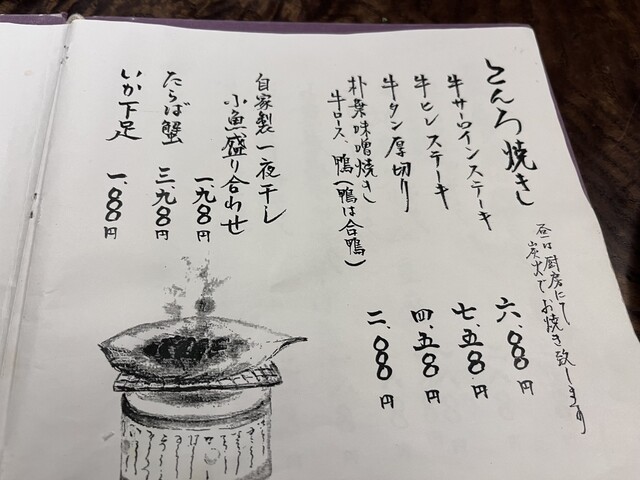 こんろ焼き
昼は厨房にて
炭火でお焼き致します
牛サーロインステーキ 六、〇〇〇円
牛ヒレステーキ 七、五〇〇円
牛タン厚切り 四、五〇〇円
朴葉味噌焼き
牛ロース、鴨(鴨は合鴨) 二、〇〇〇円
自家製一夜干し
小魚盛り合わせ
一、九〇〇円
たらば蟹 三、九〇〇円
いか下足 一、〇〇〇円